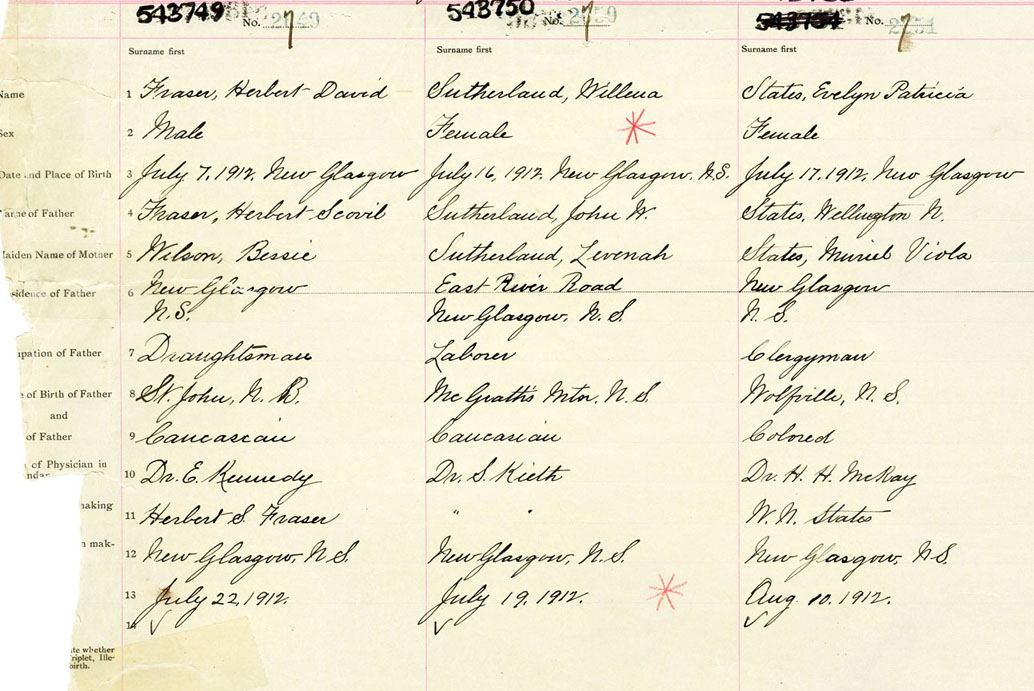 543749 No. 2749 7
543750 No. 2750 7
543751 No. 2751 7
Surname first
Surname first
Surname first
Name 1 Fraser, Herbert David Sutherland, Willena States, Evelyn Patricia
Sex 2 Male Female Female
Date and Place of Birth 3 July 7, 1912, New Glasgow July 16, 1912, New Glasgow, N.S. July 17, 1912, New Glasgow
Name of Father 4 Fraser, Herbert Scovil Sutherland, John W. States, Wellington N.
Maiden Name of Mother 5 Wilson, Bessie Sutherland, Levenah States, Muriel Viola
sidence of Father 6 New Glasgow East River Road New Glasgow
N.S. New Glasgow, N.S. N.S.
upation of Father 7 Draughtsman Laborer Clergyman
e of Birth of Father 8 St. John, N.B. McGrath's Mtn, N.S. Wolfville, N.S.
and
of Father 9 Caucasian Caucasian Colored
of Physician in 10 Dr. E. Kennedy Dr. S. Kieth Dr. H. H. McKay
ndan
making 11 Herbert S. Fraser " " W. N. States
n mak- 12 New Glasgow, N.S. New Glasgow, N.S. New Glasgow, N.S.
13 July 22, 1912. July 19, 1912. Aug. 10. 1912.
14 ✓ ✓ ✓
te whether
riplet, Ille-
birth.